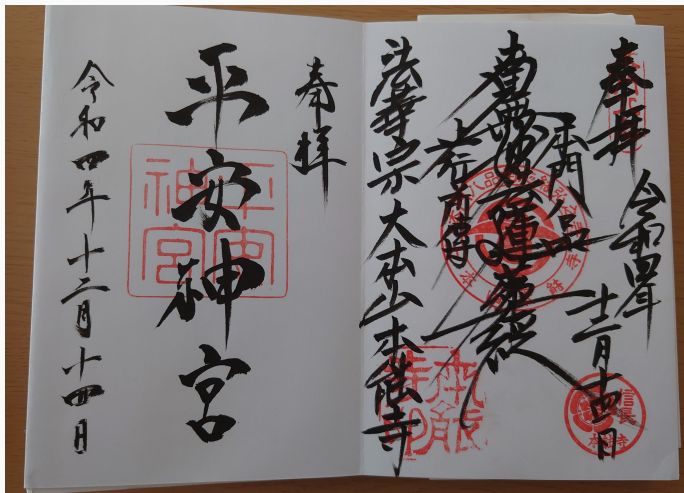 奉拝
令和四年
十二月十四日
本門八品
南無妙法蓮華経
上行所傳
法華宗大本山本能寺
信長
本能寺
奉拝
平安神宮
平安神宮
令和四年十二月十四日